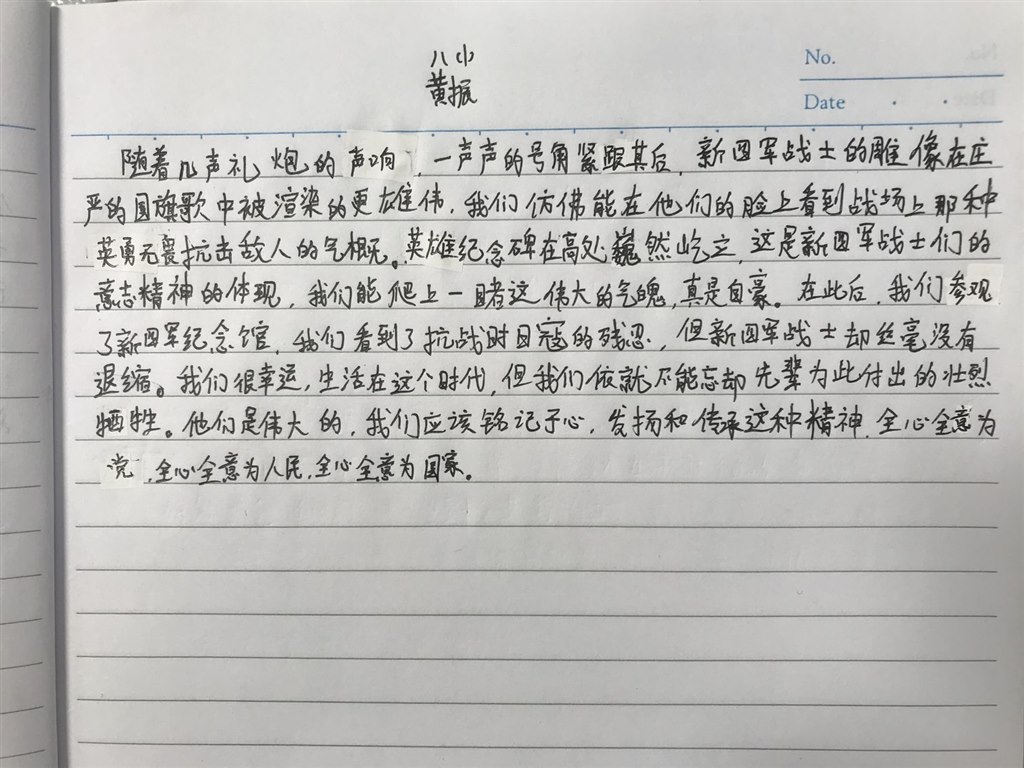 八小
黄振
No.
Date
随着几声礼炮的声响，一声声的号角紧跟其后，新四军战士的雕像在庄
严的国旗歌中被渲染的更雄伟，我们仿佛能在他们的脸上看到战场上那种
英勇无畏抗击敌人的气概。英雄纪念碑在高处巍然屹立，这是新四军战士们的
意志精神的体现，我们能爬上一睹这伟大的气魄，真是自豪。在此后，我们参观
了新四军纪念馆，我们看到了抗战时日寇的残忍，但新四军战士却丝毫没有
退缩。我们很幸运，生活在这个时代，但我们依就不能忘却先辈为此付出的壮烈
牺牲。他们是伟大的，我们应该铭记于心，发扬和传承这种精神，全心全意为
党，全心全意为人民，全心全意为国家。